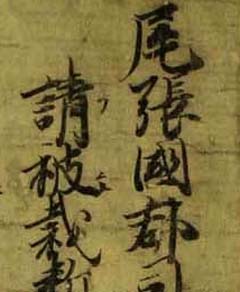 尾張國郡司
請被裁断